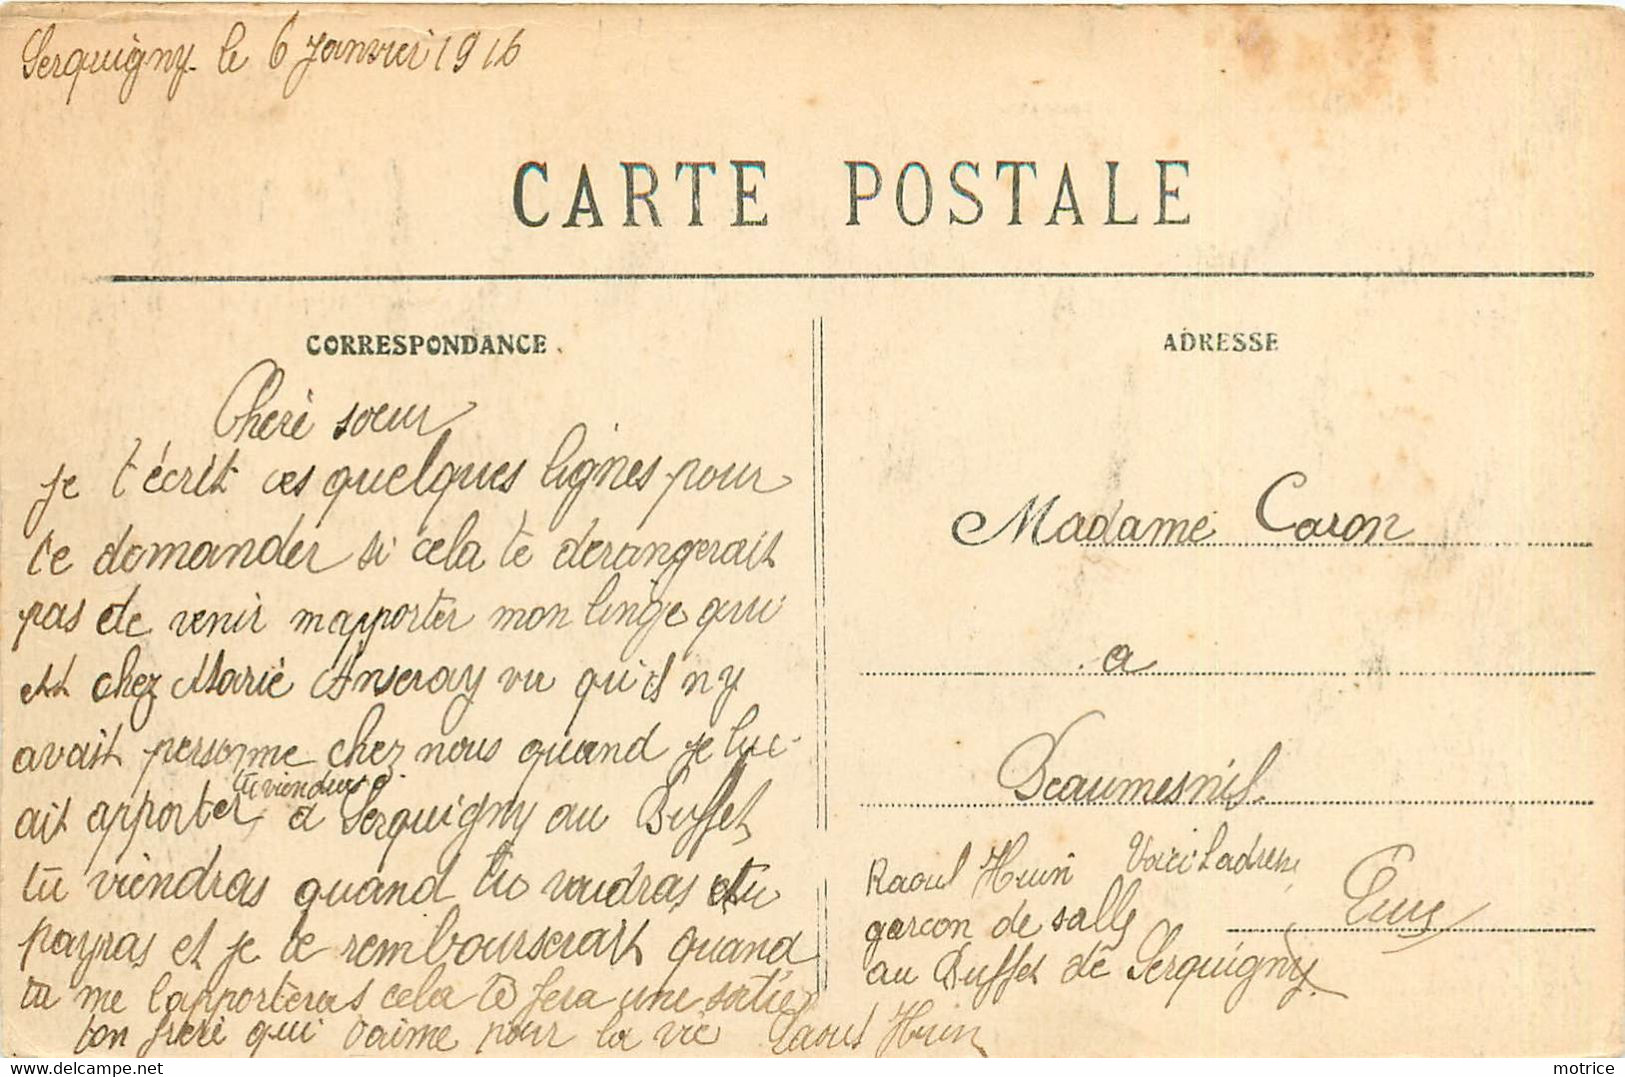 Serquigny le 6 Janvier 1916
CARTE POSTALE
CORRESPONDANCE
Cheré soeur
je t'écrit ces quelques lignes pour
te domander si cela te derangerait
pas de venir mapporter mon linge qui
est chez Marie Anseray vu qu'il ny
avait personne chez nous quand je luc
tu viendras
ait apporter a Serquigny au Buffet
tu viendras quand tu voudras et tu
payras et je te rembourserait quand
tu me l'apporteras cela te fera une sortie
ton frere qui t'aime pour la vie Raoul Huin
ADRESSE
Madame Caron
a
Beaumesnil
Eure
Voici l'adresse
Raoul Huin
garcon de salle
au Buffet de Serquigny
motrice